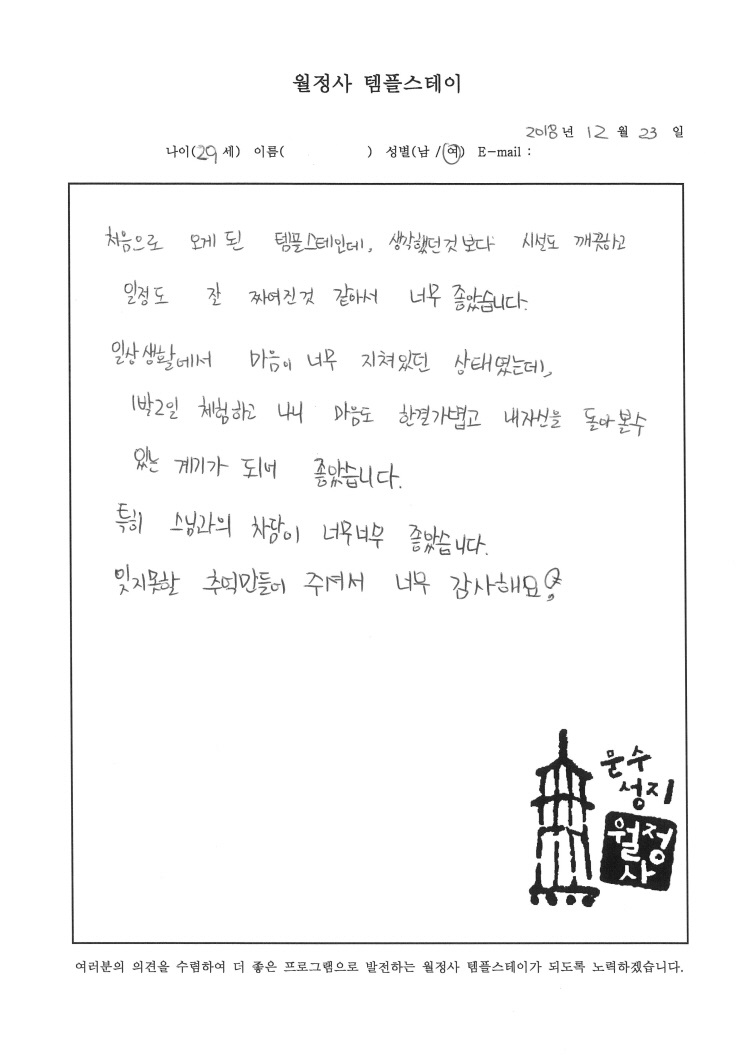 월정사 템플스테이
2018년 12월 23일
나이(29세) 이름( ) 성별(남 /여) E-mail :
처음으로 오게 된 템플스테인데, 생각했던것보다 시설도 깨끗하고
일정도 잘 짜여진것 같아서 너무 좋았습니다.
일상생활에서 마음이 너무 지쳐있던 상태였는데,
1박2일 체험하고 나니 마음도 한결가볍고 내자신을 돌아볼수
있는 계기가 되어 좋았습니다.
특히 스님과의 차담이 너무너무 좋았습니다.
잊지못할 추억만들어 주셔서 너무 감사해요
문수
성지
월정
사
여러분의 의견을 수렴하여 더 좋은 프로그램으로 발전하는 월정사 템플스테이가 되도록 노력하겠습니다.